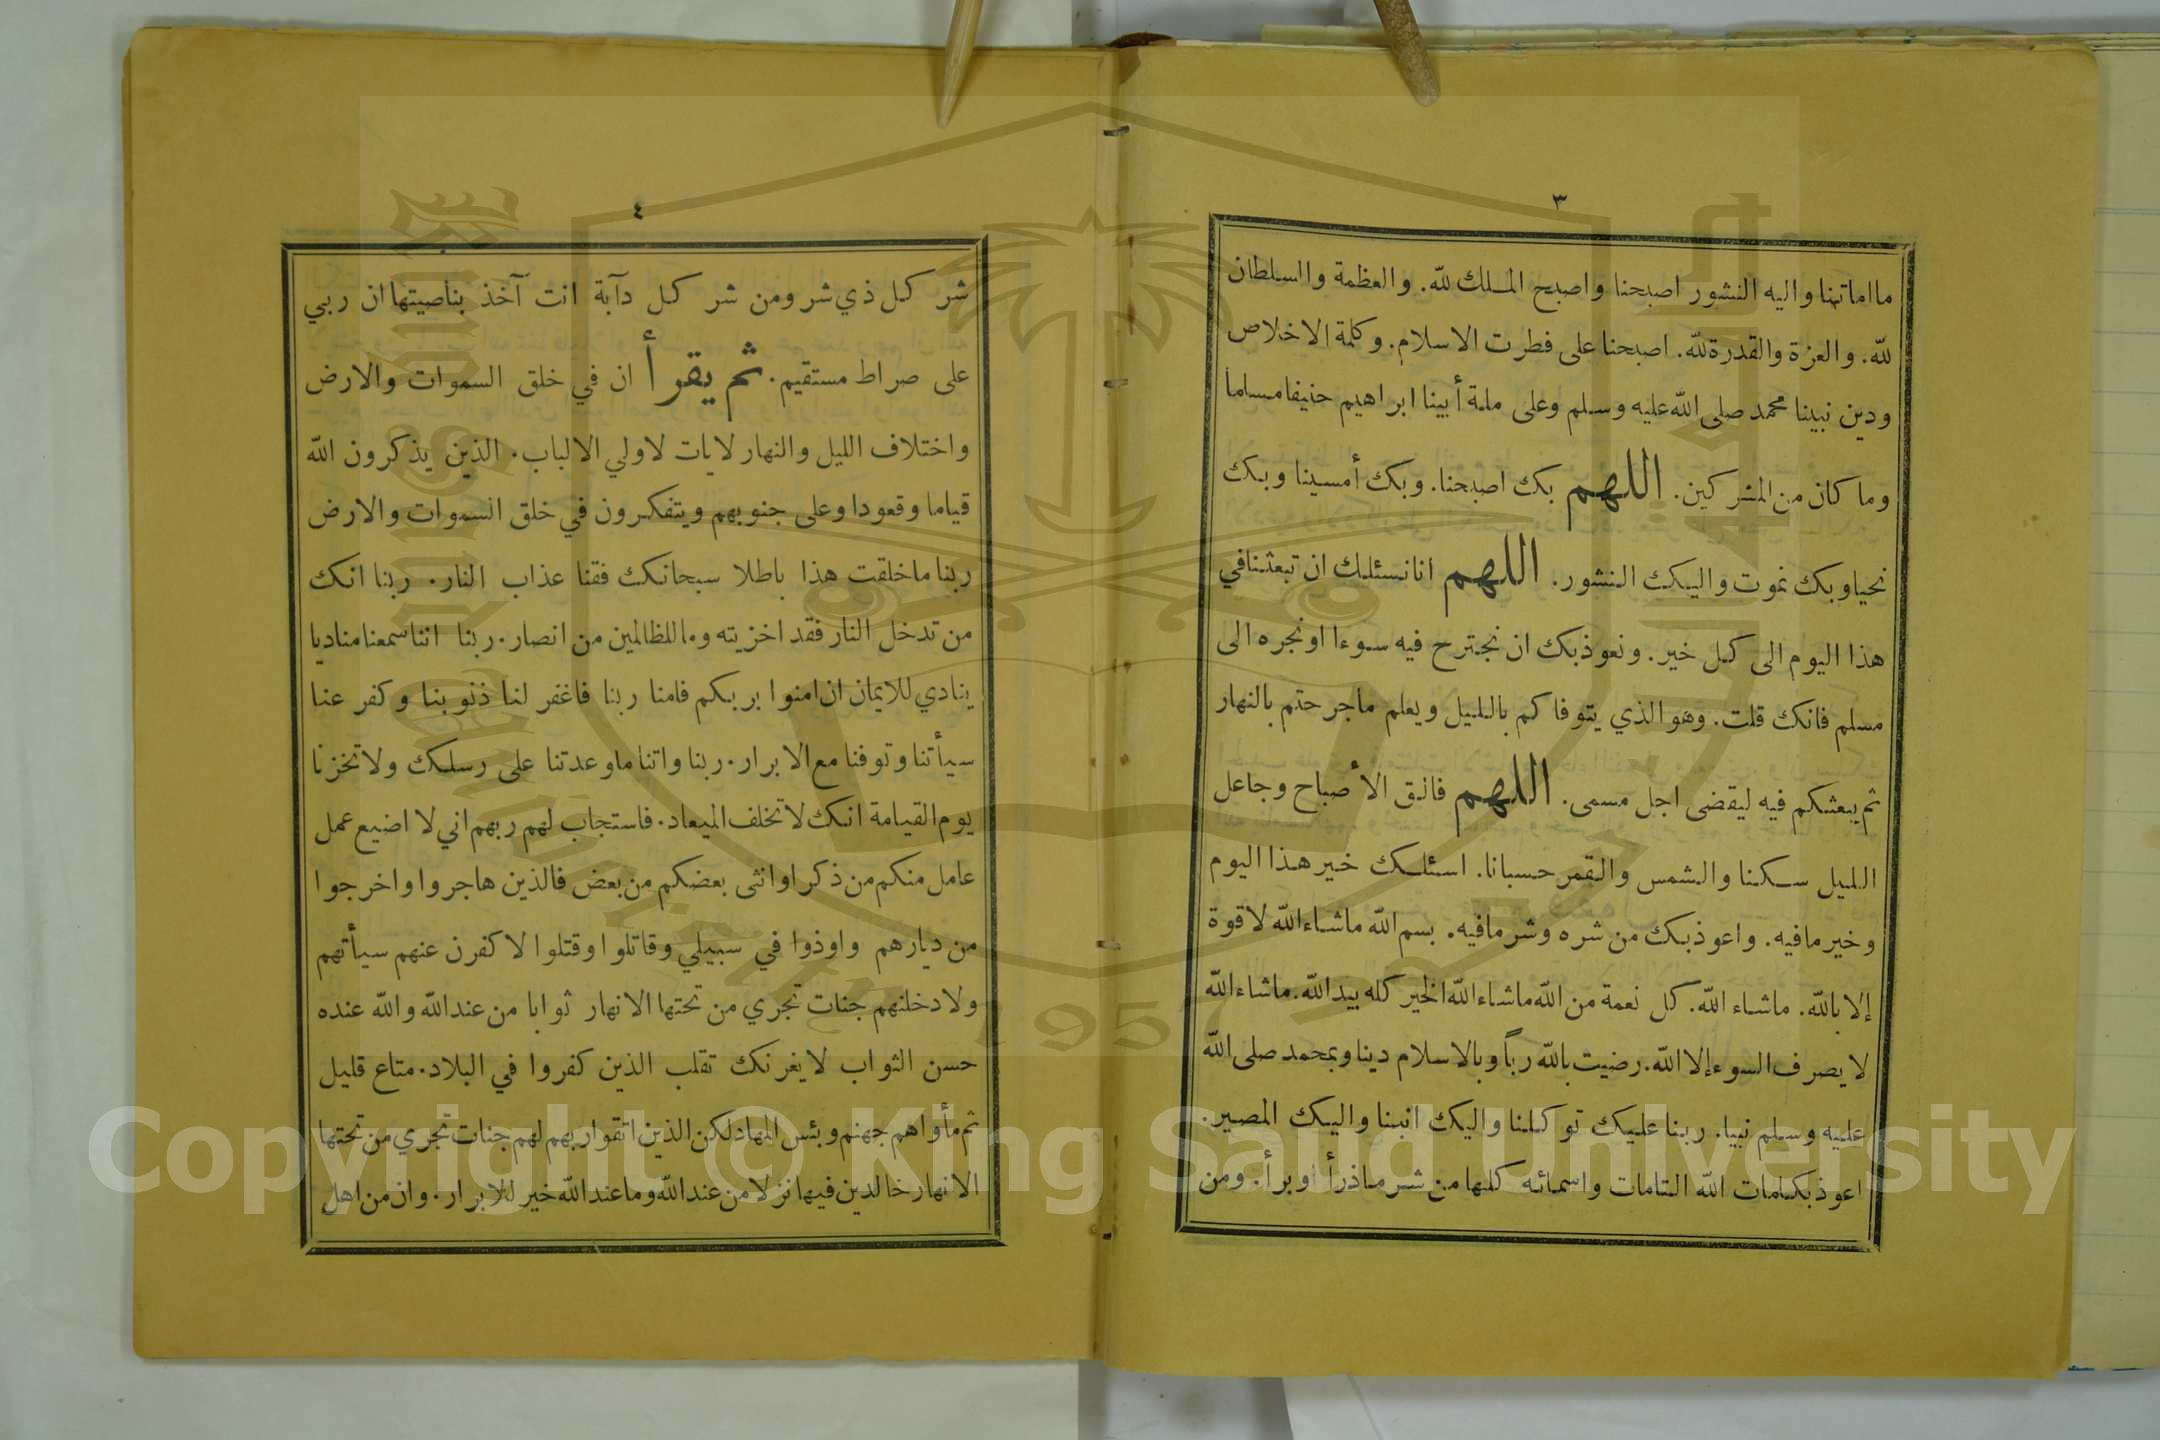 ٣
ما اماتهنا واليه النشور اصبحنا واصبح الملك لله. والعظمة والسلطان
لله. والعزة والقدرة لله. اصبحنا على فطرت الاسلام. وكلمة الاخلاص
ودين نبينا محمد صلى الله عليه وسلم وعلى ملة أبينا ابراهيم حنيفا مسلما
وما كان من المشركين. اللهم بك اصبحنا. وبك أمسينا وبك
نحيا وبك نموت واليك النشور. اللهم انا نسئلك ان تبعثنا في
هذا اليوم الى كل خير. ونعوذ بك ان نجترح فيه سوءا او نجره الى
مسلم فانك قلت. وهو الذي يتوفاكم بالليل ويعلم ما جرحتم بالنهار
ثم يبعثكم فيه ليقضى اجل مسمى. اللهم فالق الأصباح وجاعل
الليل سكنا والشمس والقمر حسبانا. اسئلك خير هذا اليوم
وخير ما فيه. واعوذ بك من شره وشر ما فيه. بسم الله ما شاء الله لا قوة
إلا بالله. ما شاء الله. كل نعمة من الله ما شاء الله الخير كله بيد الله. ما شاء الله
لا يصرف السوء إلا الله. رضيت بالله رباً وبالاسلام دينا وبمحمد صلى الله
عليه وسلم نبيا. ربنا عليك توكلنا واليك انبنا واليك المصير.
اعوذ بكلمات الله التامات واسمائه كلها من شر ما ذرأ وبرأ. ومن
٤
شر كل ذي شر ومن شر كل دآبة انت آخذ بناصيتها ان ربي
على صراط مستقيم. ثم يقرأ ان في خلق السموات والارض
واختلاف الليل والنهار لايات لاولي الالباب. الذين يذكرون الله
قياما وقعودا وعلى جنوبهم ويتفكرون في خلق السموات والارض
ربنا ما خلقت هذا باطلا سبحانك فقنا عذاب النار. ربنا انك
من تدخل النار فقد اخزيته وما للظالمين من انصار. ربنا اننا سمعنا مناديا
ينادي للايمان ان امنوا بربكم فامنا ربنا فاغفر لنا ذنوبنا وكفر عنا
سيأتنا وتوفنا مع الابرار. ربنا واتنا ما وعدتنا على رسلك ولا تخزنا
يوم القيامة انك لا تخلف الميعاد. فاستجاب لهم ربهم اني لا اضيع عمل
عامل منكم من ذكر او انثى بعضكم من بعض فالذين هاجروا واخرجوا
من ديارهم واوذوا في سبيلي وقاتلوا وقتلوا لاكفرن عنهم سيأتهم
ولادخلنهم جنات تجري من تحتها الانهار ثوابا من عند الله والله عنده
حسن الثواب لا يغرنك تقلب الذين كفروا في البلاد. متاع قليل
ثم مأواهم جهنم وبئس المهاد لكن الذين اتقوا ربهم لهم جنات تجري من تحتها
الانهار خالدين فيها نزلا من عند الله وما عند الله خير للابرار. وان من اهل
Copyright © King Saud University